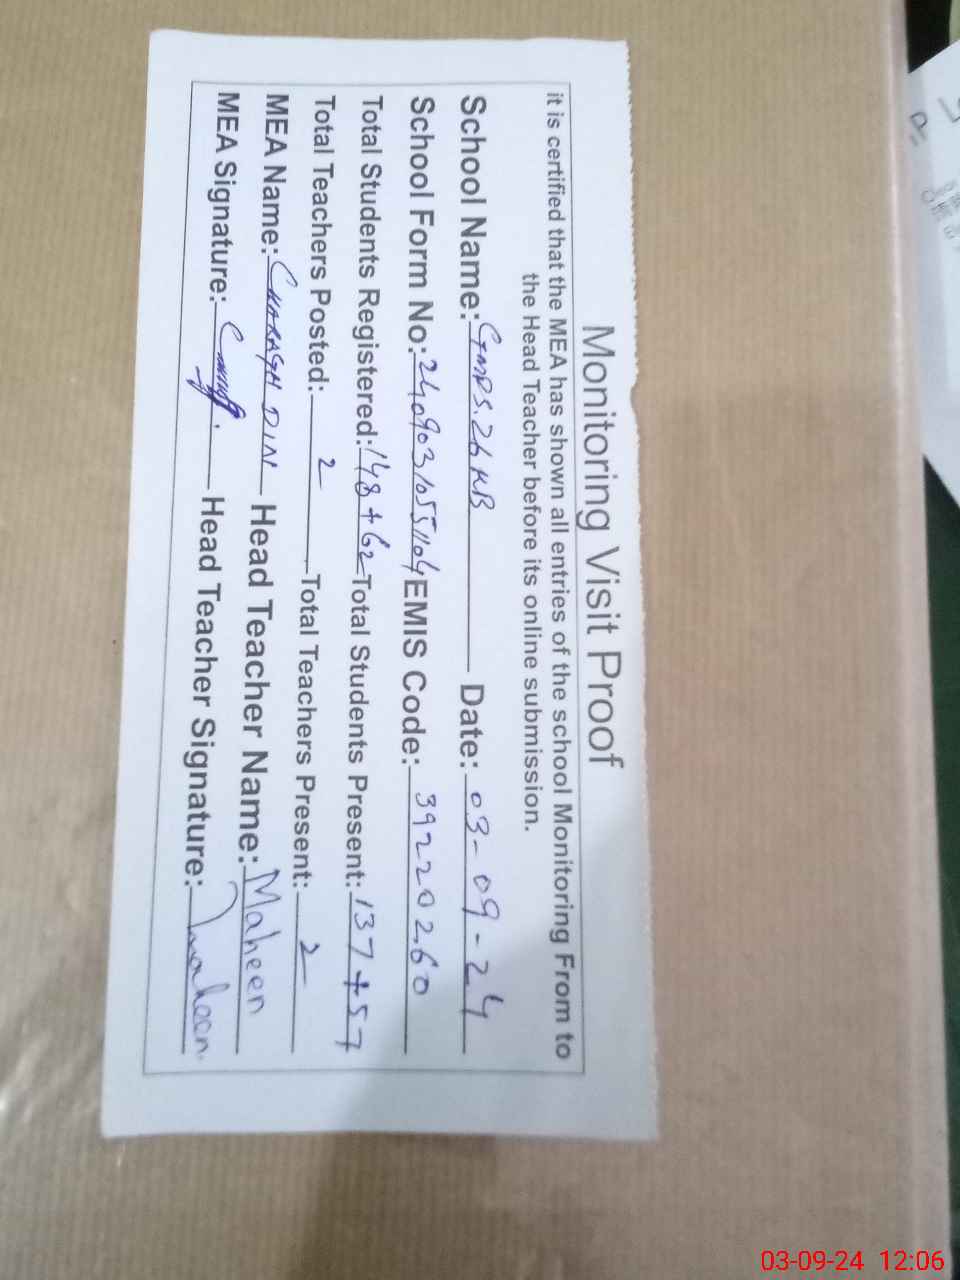 Monitoring Visit Proof
it is certified that the MEA has shown all entries of the school Monitoring From to
the Head Teacher before its online submission.
School Name: GMPS.26 KB Date: 03-09-24
School Form No: 24090310551104 EMIS Code: 39220260
Total Students Registered: 148+62 Total Students Present: 137+57
Total Teachers Posted: 2 Total Teachers Present: 2
MEA Name: CHARAGH DIN Head Teacher Name: Maheen
MEA Signature: Head Teacher Signature: Maheen
03-09-24 12:06